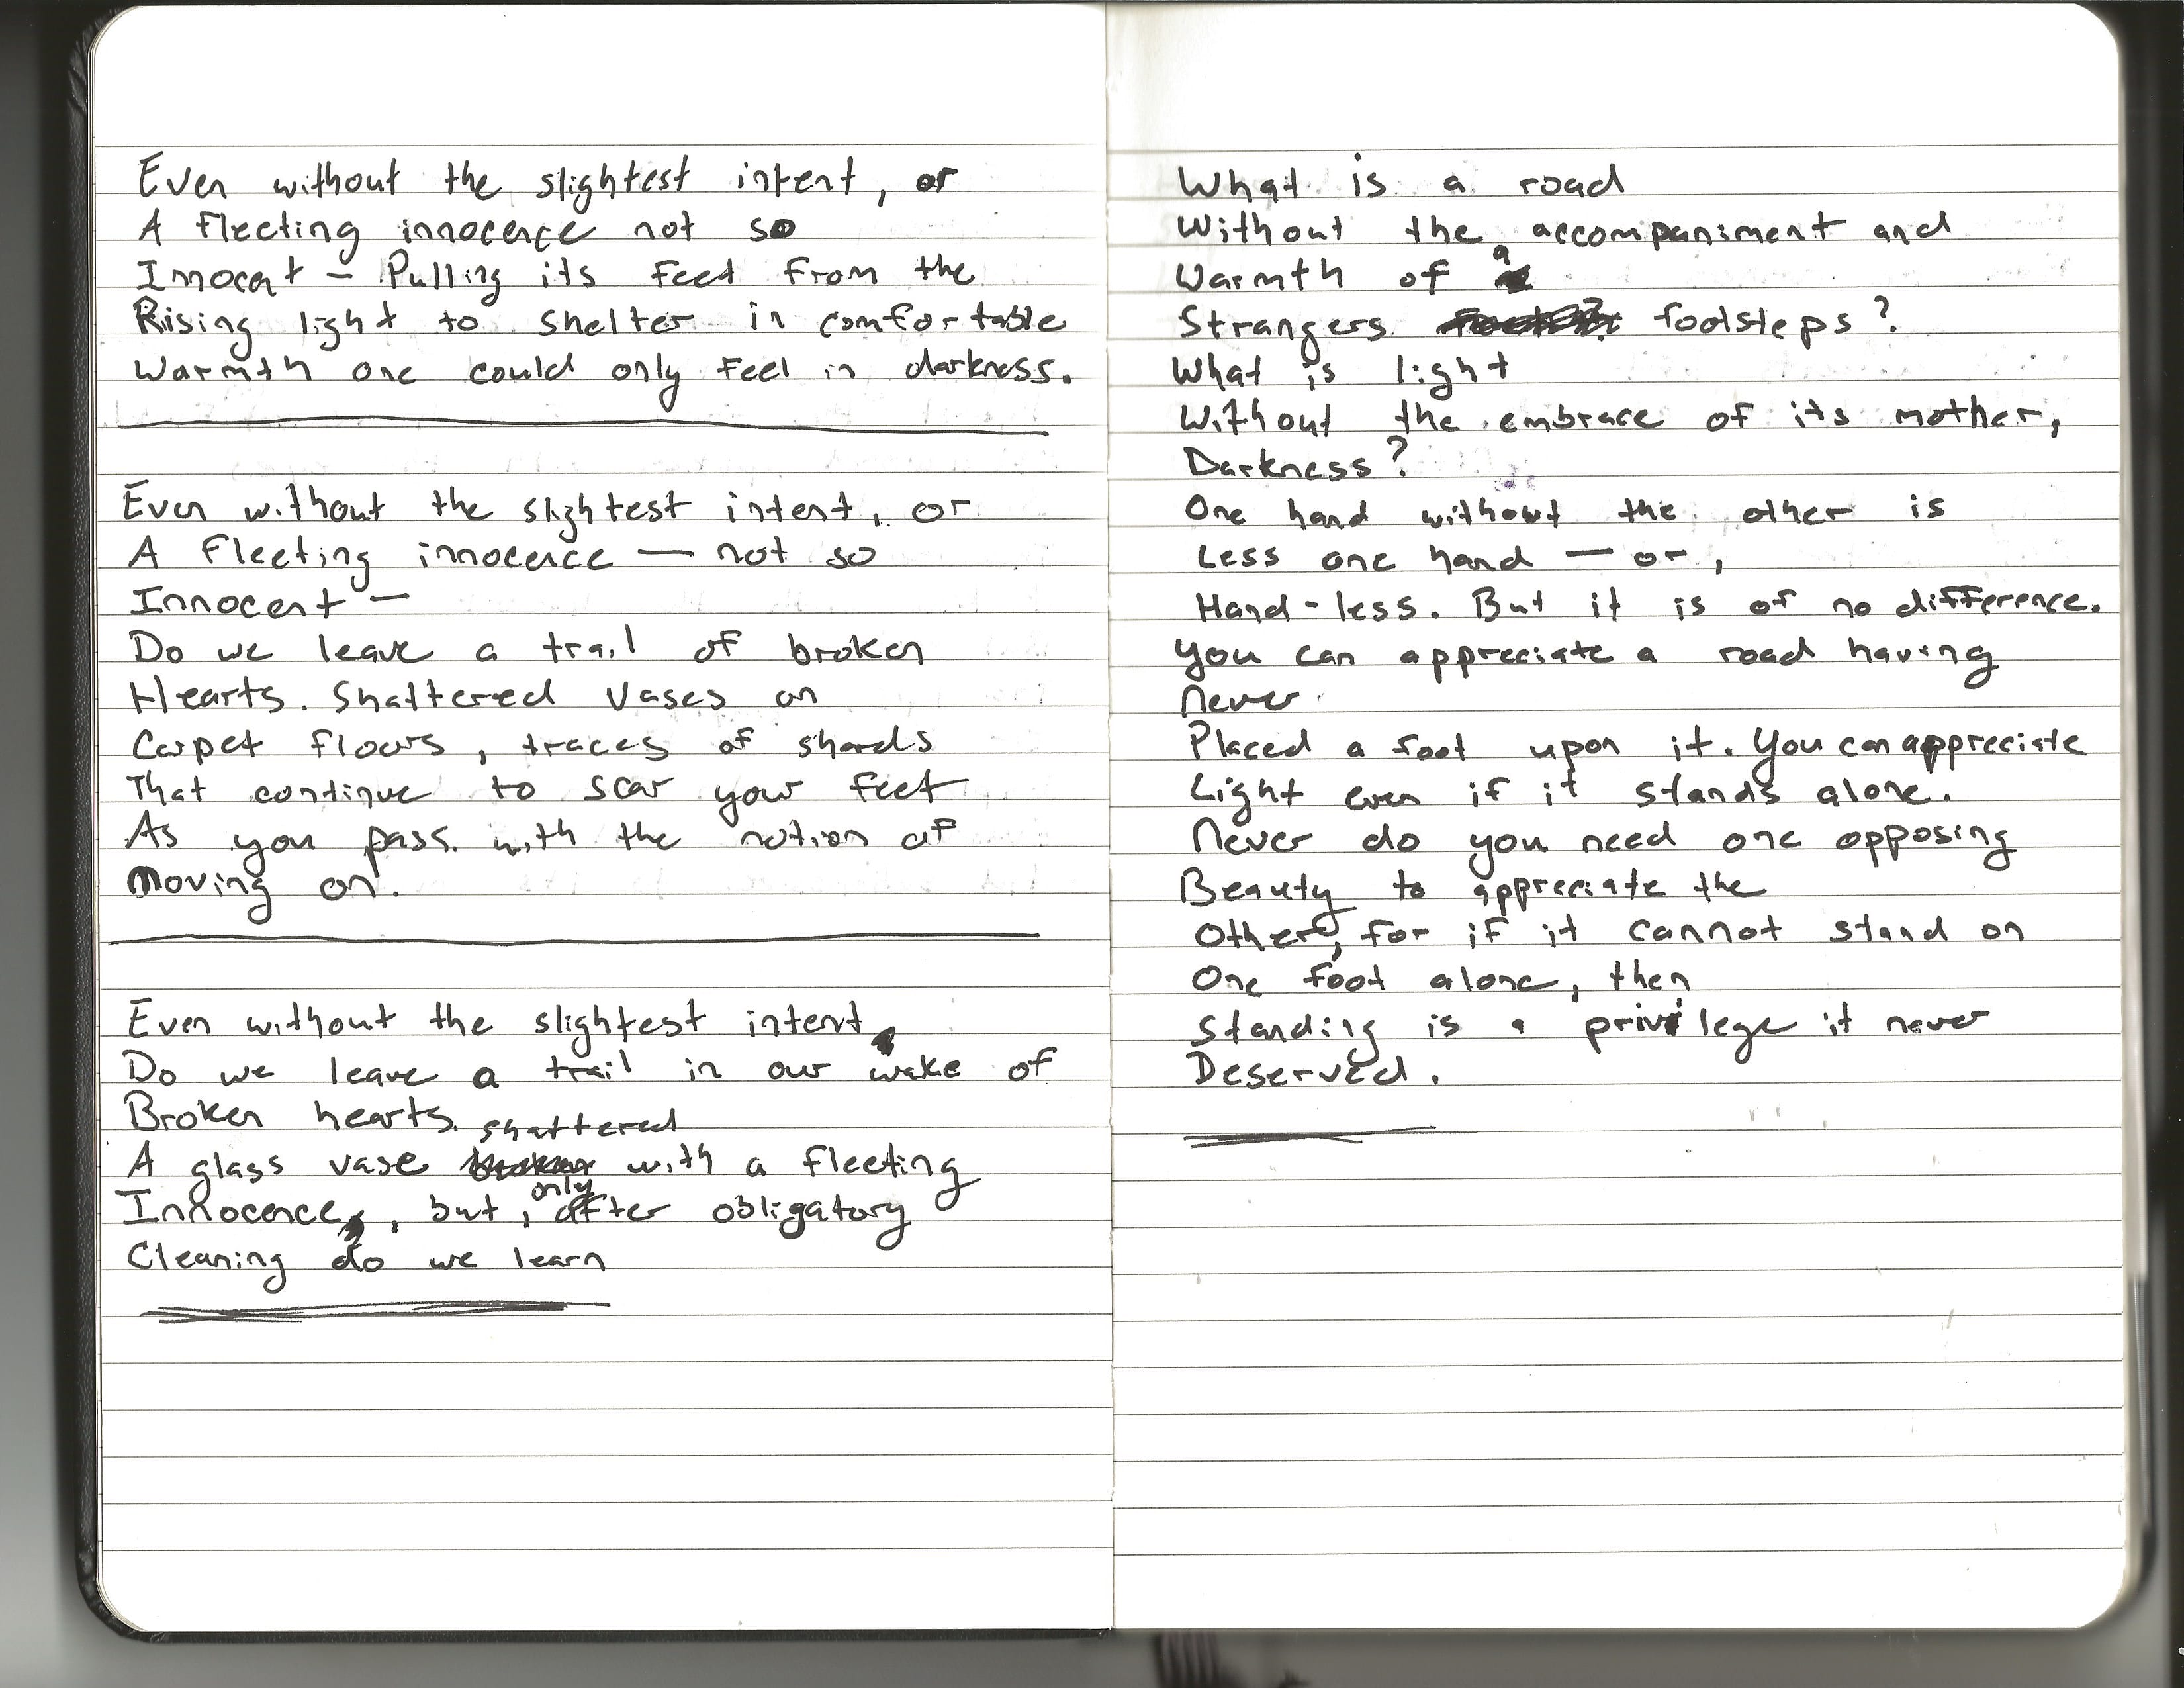 Even without the slightest intent, or
A fleeting innocence not so
Innocent – Pulling its feet from the
Rising light to shelter in comfortable
Warmth one could only feel in darkness.
Even without the slightest intent, or
A fleeting innocence — not so
Innocent –
Do we leave a trail of broken
Hearts. Shattered vases on
Carpet floors, traces of shards
That continue to scar your feet
As you pass with the notion of
Moving on.
Even without the slightest intent
Do we leave a trail in our wake of
Broken hearts.
A glass vase shattered with a fleeting
Innocence, but, only after obligatory
Cleaning do we learn
What is a road
Without the accompaniment and
Warmth of a
Strangers footsteps?
What is light
Without the embrace of its mother,
Darkness?
One hand without the other is
Less one hand — or,
Hand-less. But it is of no difference.
You can appreciate a road having
Never
Placed a foot upon it. You can appreciate
Light even if it stands alone.
Never do you need one opposing
Beauty to appreciate the
Other, for if it cannot stand on
One foot alone, then
Standing is a privilege it never
Deserved.